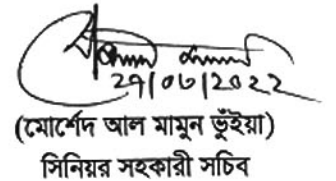 ২৭/০৬/২০২২
(মোর্শেদ আল মামুন ভূঁইয়া)
সিনিয়র সহকারী সচিব